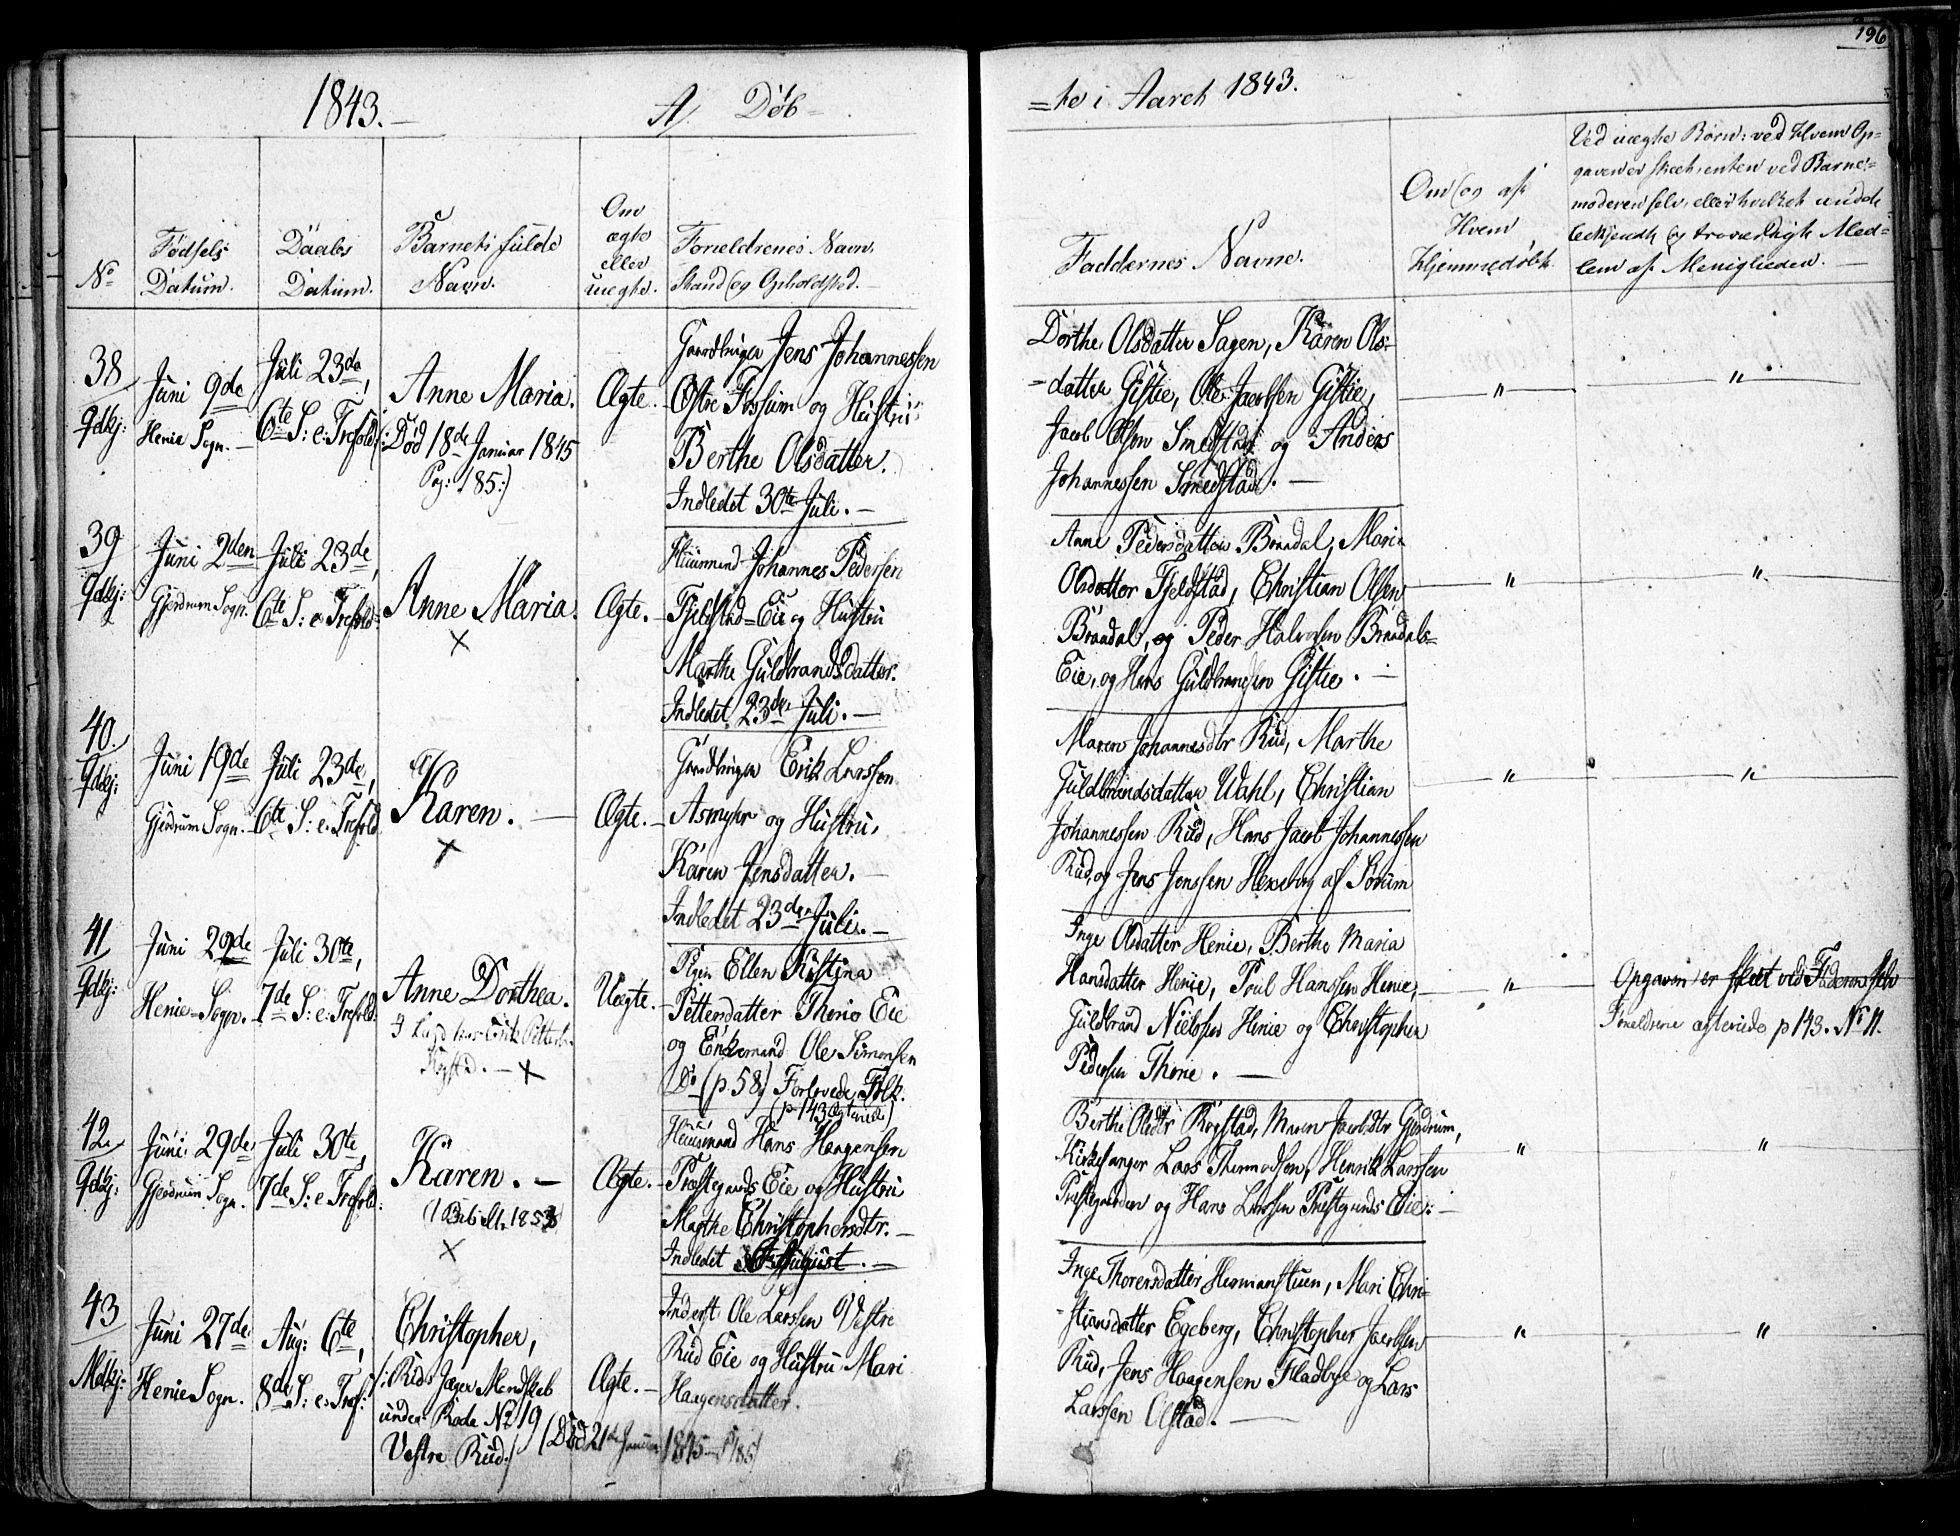 196
1843.
A) Døb-
=te i Aaret 1843.
No
Fødsels
Datum.
Daabs
Datum.
Barnets fulde
Navn.
Om
ægte
eller
uægte.
Forældrenes Navn,
Stand og Opholdsted.
Faddernes Navne.
Om og af
Hvem
hjemmedøbt.
Ved uægte Børn: ved hvem Op-
gaven er skeet, enten ved Barne-
moderen selv, eller hvilket andet
bekjendt og troværdigt Med-
lem af Menigheden.
38
Gdkj:
Juni 9de
Henie Sogn.
Juli 23de,
6te S: e: Trefold:
Anne Maria.
(: Død 18de Januar 1845
Pag: 185:)
Ægte.
Gaardbruger Jens Johannessen
Østre Fossum og Hustru
Berthe Olsdatter.
Indledet 30te Juli.
Dorthe Olsdatter Sagen, Karen Ols-
datter Gistie, Ole Jacobsen Gistie,
Jacob Olsen Smedstad og Anders
Johannessen Smedstad.
"
"
39
Gdkj:
Juni 2den
Gjerdrum Sogn.
Juli 23de,
6te S: e: Trefold:
Anne Maria.
X
Ægte.
Huusmand Johannes Pedersen
Fjeldstad-Eie og Hustru
Marthe Guldbrandsdatter.
Indledet 23de Juli.
Anne Pedersdatter Braadal, Marie
Olsdatter Fjeldstad, Christian Olsen
Braadal, og Peder Halvorsen Braadals-
Eie, og Hans Guldbrandsen Gistie.
"
"
40.
Gdkj:
Juni 19de
Gjerdrum Sogn.
Juli 23de,
6te S: e: Trefold
Karen.
X
Ægte.
Gaardbruger Erik Larssen
Asmyhr og Hustru,
Karen Jensdatter.
Indledet 23de Juli.
Maren Johannesdtr Rud, Marthe
Guldbrandsdatter Wahl, Christian
Johannessen Rud, Hans Jacob Johannessen
Rud, og Jens Jenssen Hexeberg af Sørum
"
"
41
Gdkj:
Juni 22de
Henie-Sogn.
Juli 30te,
7de S: e: Trefold:
Anne Dorthea.
X
Uægte.
Pigen Ellen Kistina
Pettersdatter Thorie Eie
og Enkemand Ole Simensen
Do (p 58) Forlovede Folk.
(p 143 ægteviede)
Inge Olsdatter Henie, Berthe Maria
Hansdatter Henie, Poul Hanssen Henie,
Guldbrand Nielssen Henie og Christopher
Pedersen Thorie.
"
Opgaven er skeet ved Faderen selv
Forældrene ægteviede p 143. No 11.
42
Gdkj:
Juni 29de
Gjerdrum Sogn.
Juli 30te,
7de S: e: Trefold:
Karen.
X
Ægte.
Huusmand Hans Haagensen
Præstegaards Eie og Hustru
Marthe Christophersdtr.
Indledet August.
Berthe Olsdtr Rogstad, Maren Jacobsdtr Gjerdrum,
Kirkesanger Lars Thermodsen, Henrik Larssen
Præstegaarden og Hans Larssen Præstegaards Eie:
"
"
43
Mdkj:
Juni 27de
Henie Sogn.
Aug: 6te,
8de S: e: Tref:
Christopher,
(: Ruds Jæger Mandskab
under Rode No 19
Vestre Rud:)
(Død 21de Januar 1845 P 185)
Ægte.
Inderst Ole Larssen Vestre
Rud Eie og Hustru Mari
Haagensdatter.
Inge Thorersdatter Hermanstuen, Mari Chri-
stiansdatter Egeberg, Christopher Jacobsen
Rud, Jens Haagensen Fladbye og Lars
Larssen Olstad.
"
"